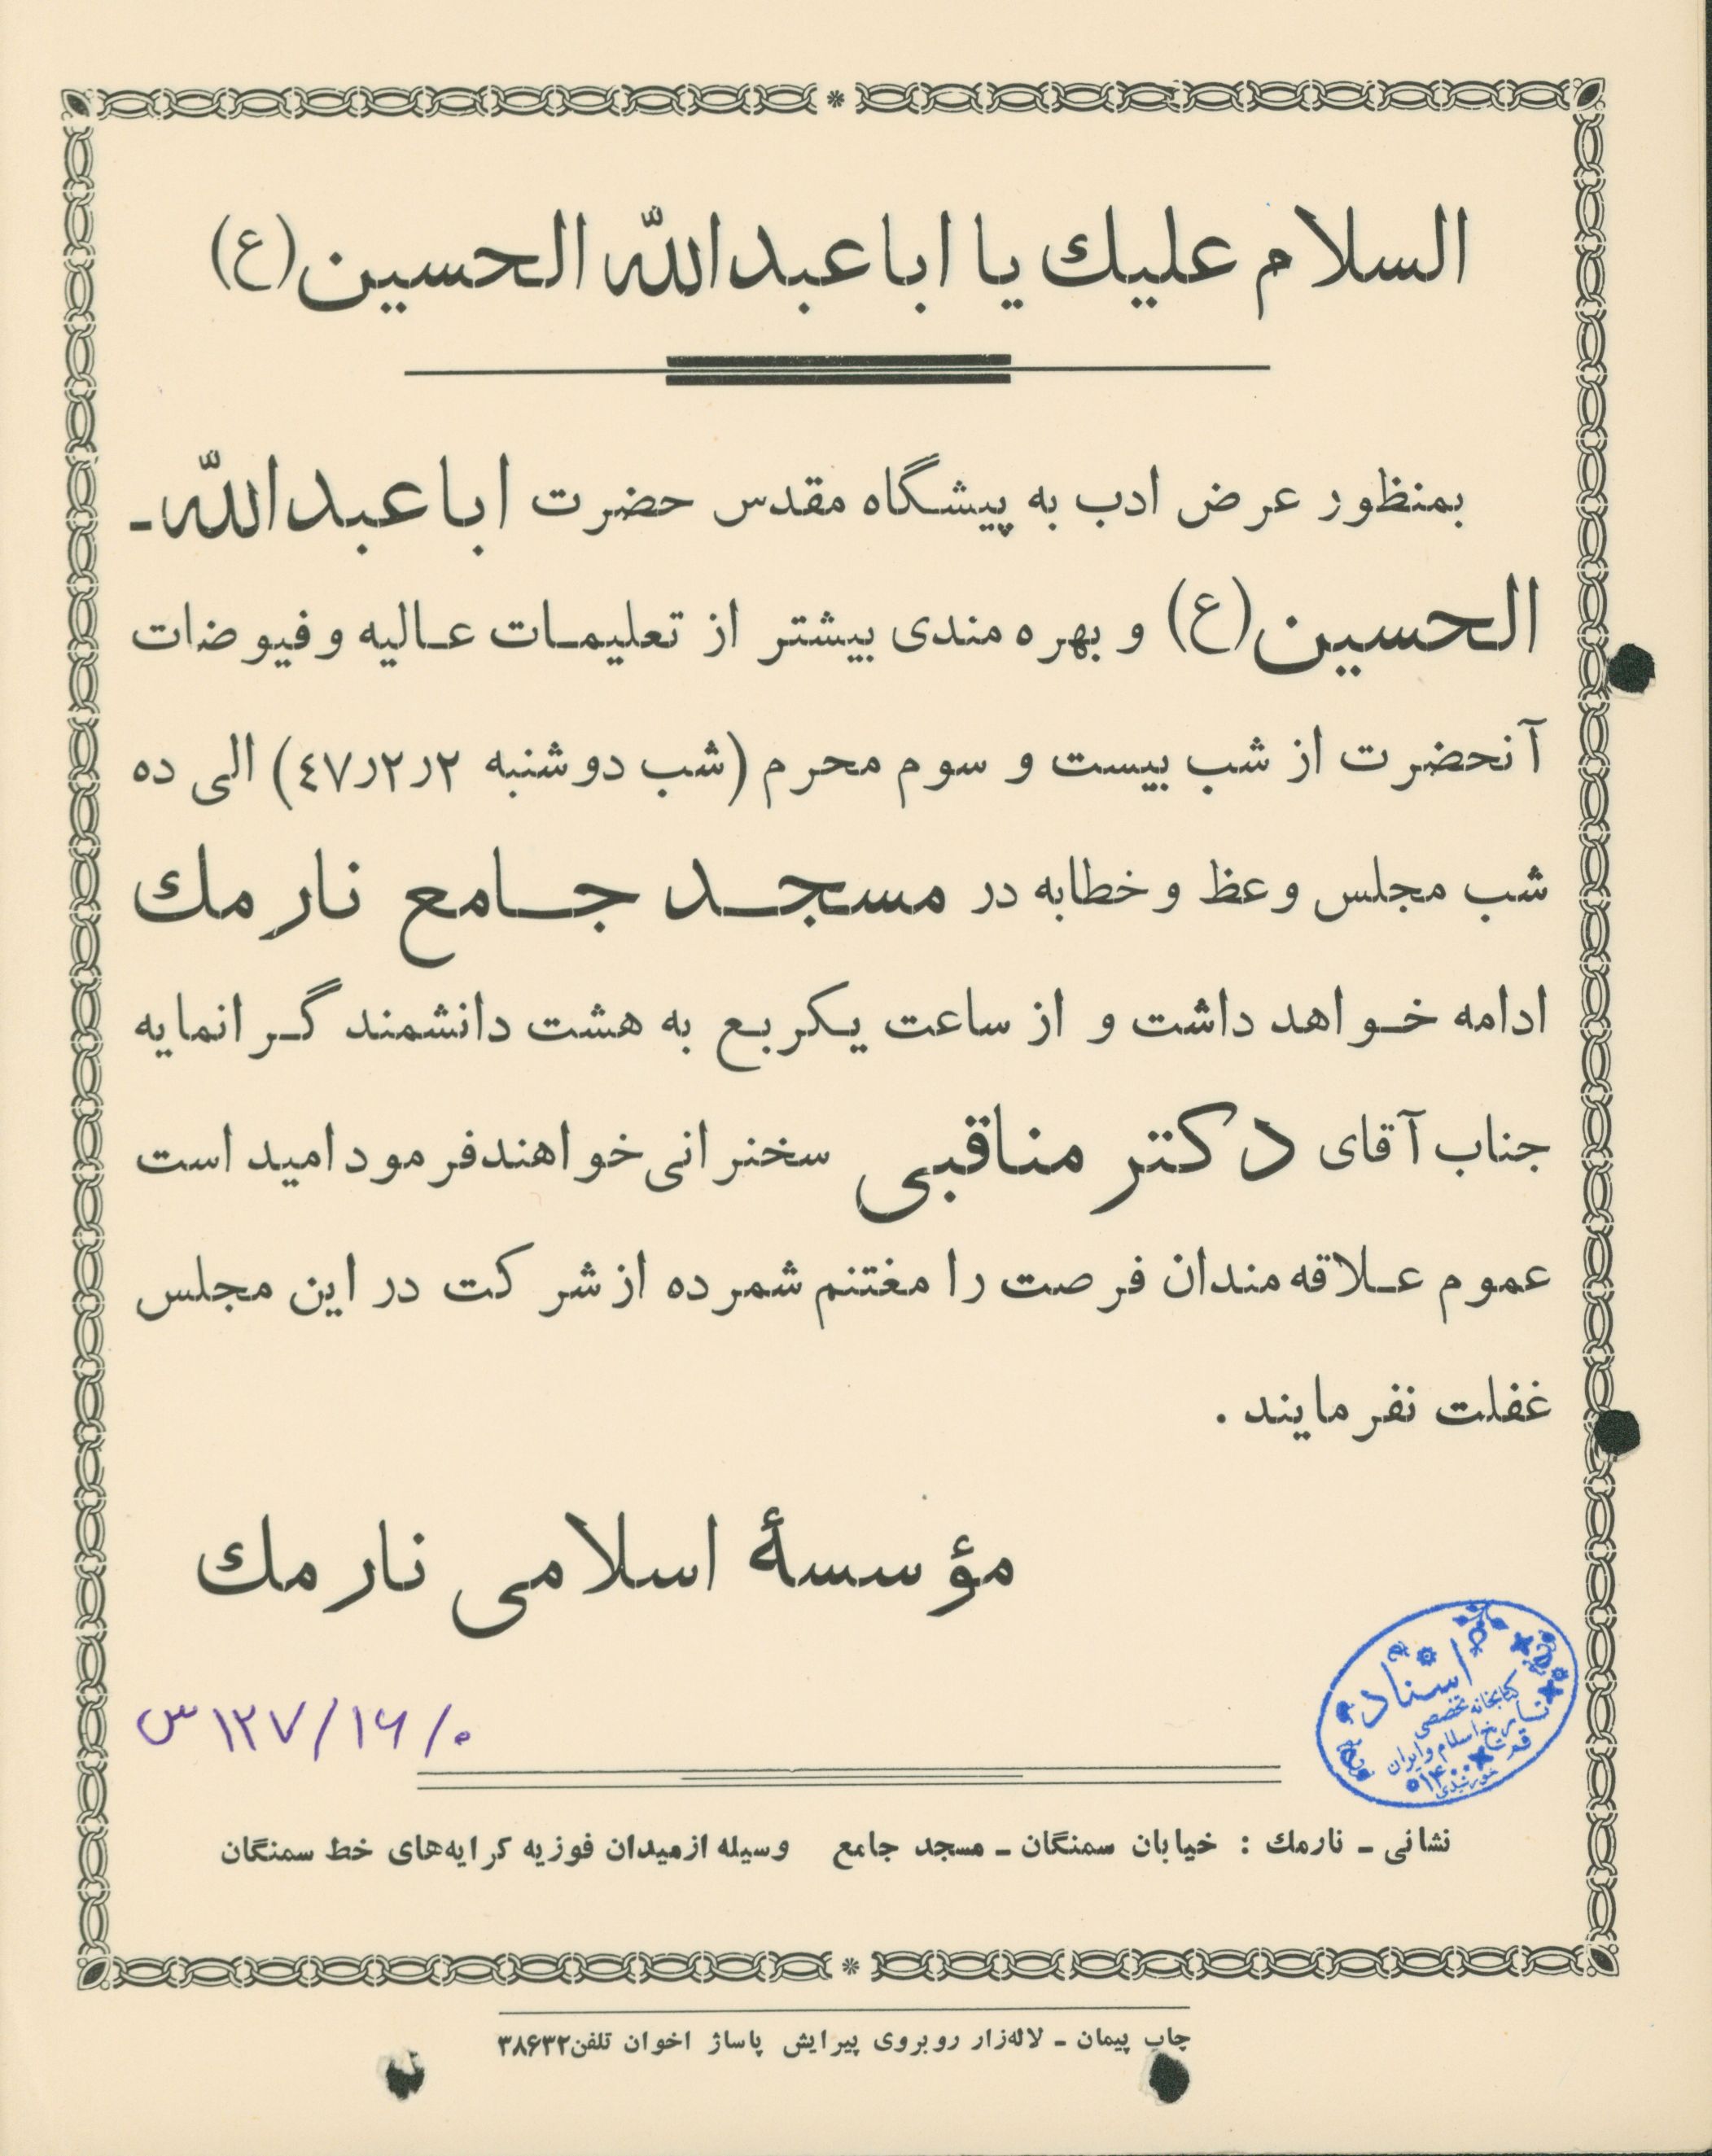 السلام عليك يا اباعبدالله الحسين(ع)
بمنظور عرض ادب به پیشگاه مقدس حضرت اباعبدالله ـ
الحسین(ع) و بهره مندی بیشتر از تعلیمـات عـالیه و فیوضات
آنحضرت از شب بیست و سوم محرم (شب دوشنبه ۲ر۲ر٤۷) الی ده
شب مجلس وعظ و خطابه در مسجـد جـامع نارمك
ادامه خـواهد داشت و از ساعت یـکربـع به هشت دانشمند گـرانمایه
جناب آقای دکتر مناقبی سخنرانی خواهندفرمود امید است
عموم عـلاقه مندان فرصت را مغتنم شمرده از شرکت در این مجلس
غفلت نفرمایند .
مؤسسهٔ اسلامی نارمك
س ۱۲۷/۱۶/۰
اسناد
کتابخانه تخصصی
تاریخ اسلام و ایران
قم
۱۴۰۰
خورشیدی
نشانی ـ نارمك : خیابان سمنگان ـ مسجد جامع وسیله ازمیدان فوزیه کرایه‌های خط سمنگان
چاپ پیمان ـ لاله‌زار روبروی پیرایش پاساژ اخوان تلفن۳۸۶۳۲